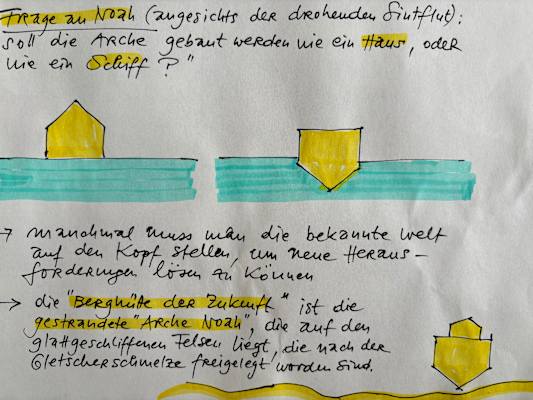 Frage an Noah (angesichts der drohenden Sintflut):
soll die Arche gebaut werden wie ein Haus, oder
wie ein Schiff?"
→ manchmal muss man die bekannte Welt
auf den Kopf stellen, um neue Heraus-
forderungen lösen zu können
→ die "Berghütte der Zukunft" ist die
gestrandete "Arche Noah", die auf den
glattgeschliffenen Felsen liegt, die nach der
Gletscherschmelze freigelegt worden sind.